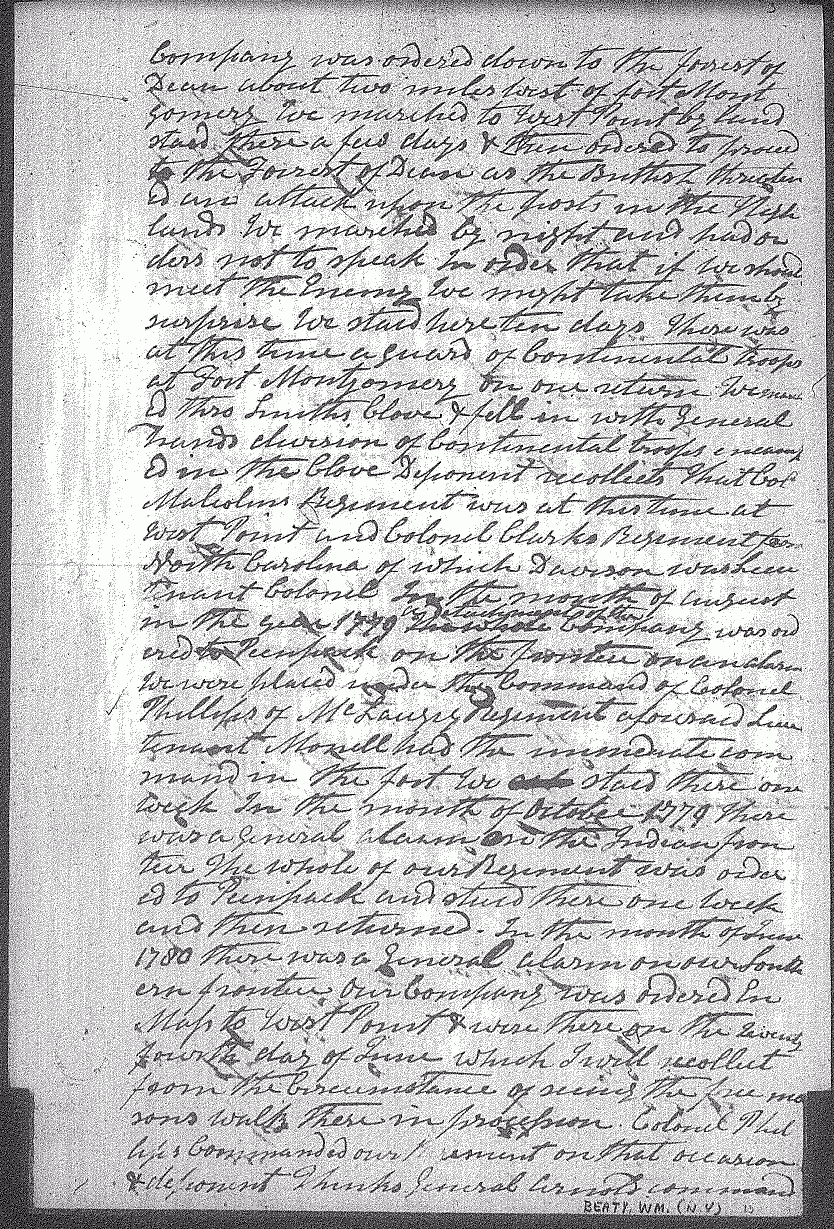 Company was ordered down to the forrest of
Dean about two miles west of fort Mont
gomery We marched to West Point by land
staid there a few days & then ordered to proceed
to the Forrest of Dean as the Brittish threaten
ed an attack upon the posts in the High
lands We marched by night and had or
ders not to speak In order that if we should
meet the Enemy We might take them by
surprise We staid here ten days There was
at this time a guard of Continental troops
at Fort Montgomery On our return We
ed thro Smiths Clove & fell in with General
hands division of Continental troops encamp
ed in the Clove Deponent recollects that Col
Malcolms Regiment was at this time at
West Point and Colonel Clarks Regiment from
North Carolina of which Davison was Lieu
tenant Colonel In the month of august
in the year 1779 a detachment of the Company was ord
ered to Peenpack on the frontier on an alarm
We were placed under the Command of Colonel
Phillips of McLaugry Regiment aforesaid Lieu
tenant Monell had the immediate com
mand in the fort We staid there one
week In the month of October 1779 there
was a General alarm on the Indian fron
tier The whole of our Regiment was order
ed to Peenpack and staid there one week
and then returned. In the month of June
1780 there was a General alarm on our South
ern frontier Our Company was ordered En
Mass to West Point & were there on the twenty
fourth day of June which I will recollect
from the Circumstance of seeing the free ma
sons walk there in procession. Colonel Phil
lips Commanded our on that occasion
& deponent thinks General Arnold command
BEATY, WM. (N.Y)